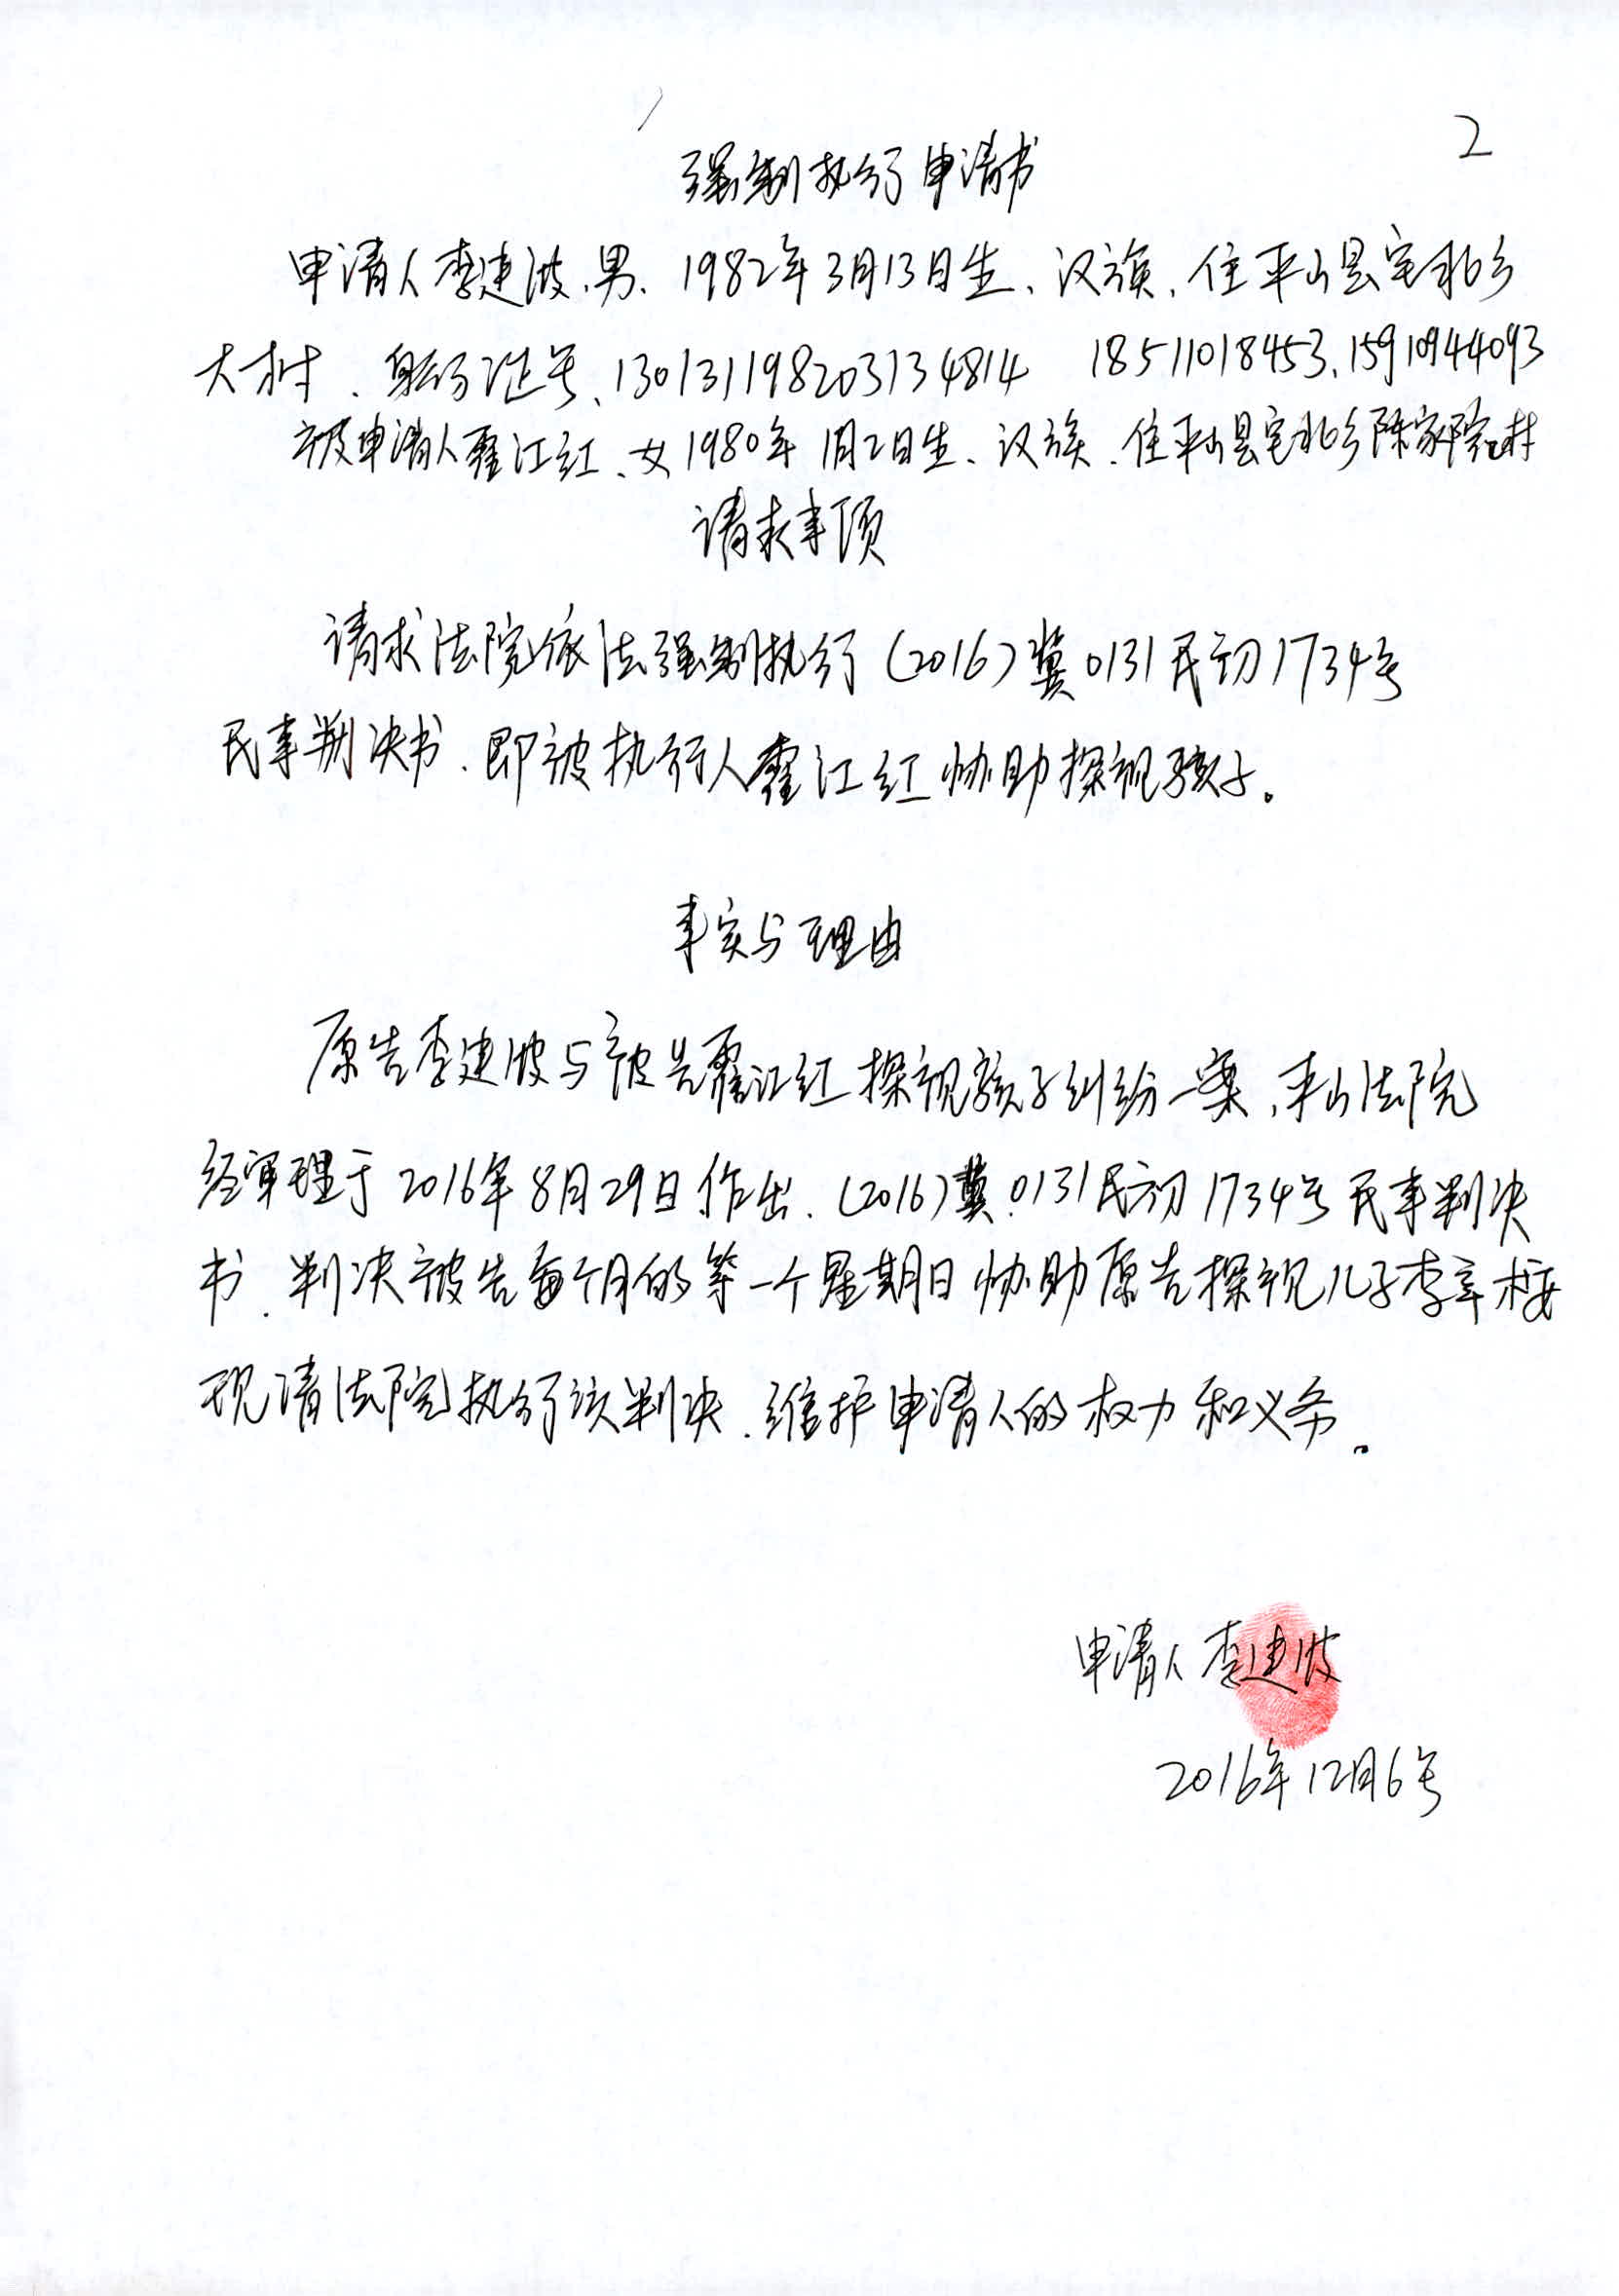 2
强制执行申请书
申请人李建波、男、1982年3月13日生、汉族、住平山县宅北乡
大村、身份证号、130131198203134814 18511018453、15910944093
被申请人霍江红、女1980年1月2日生、汉族、住平山县宅北乡陈家院村
请求事项
请求法院依法强制执行(2016)冀0131民初1734号
民事判决书、即被执行人霍江红协助探视孩子。
事实与理由
原告李建波与被告霍江红探视孩子纠纷一案、平山法院
经审理于2016年8月29日作出、(2016)冀0131民初1734号民事判决
书、判决被告每个月的第一个星期日协助原告探视儿子李
现请法院执行该判决、维护申请人的权力和义务。
申请人李建波
2016年12月6号